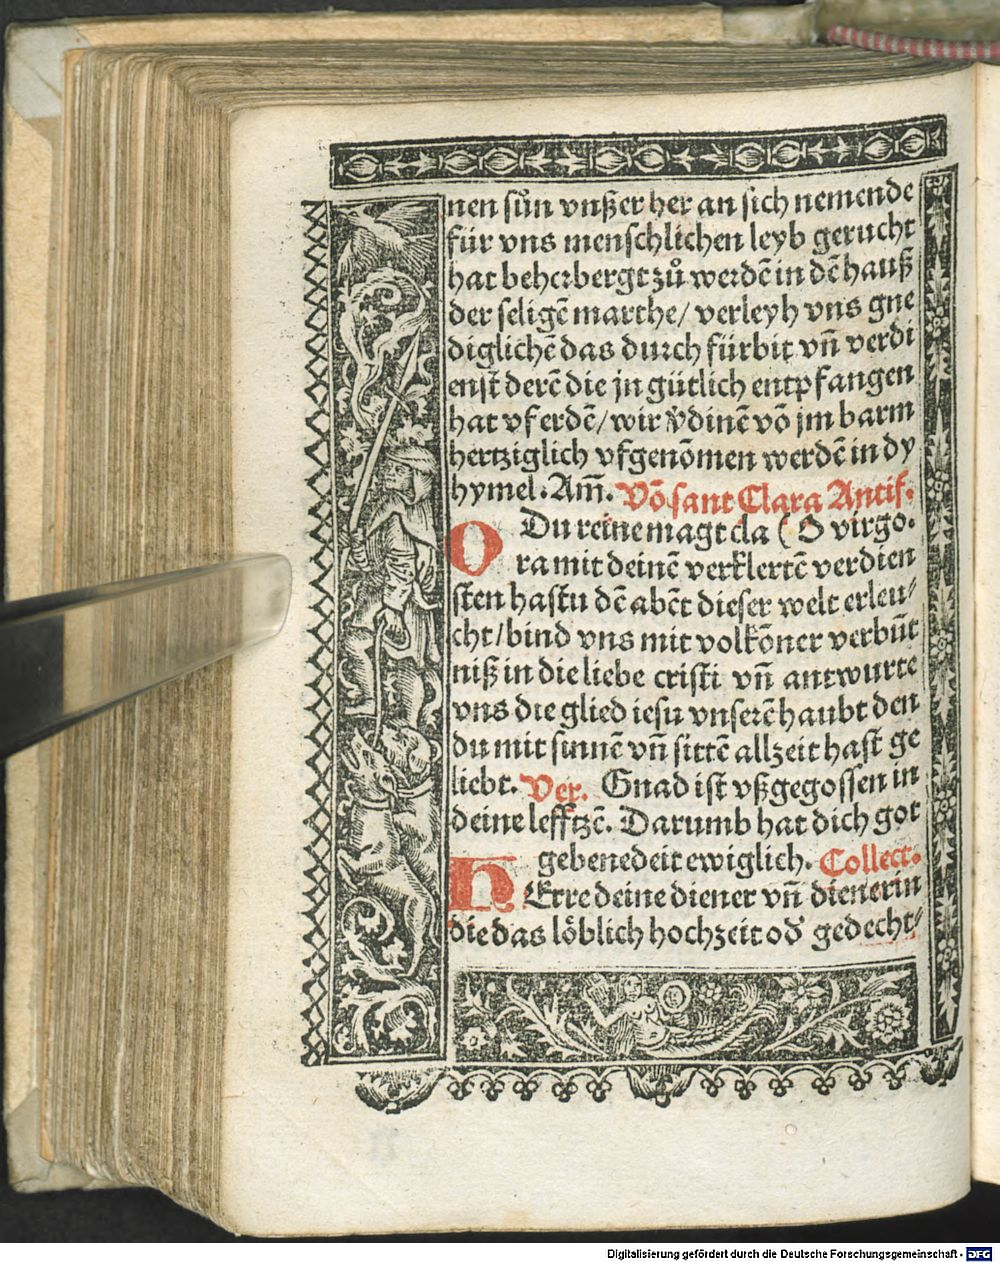 nen sůn vnßer her an sich nemende
für vns menschlichen leyb gerucht
hat beherbergt zů werdē in dē hauß
der seligē marthe/ verleyh vns gne
diglichē das durch fürbit vn̄ verdi
enst derē die jn gütlich entpfangen
hat vf erdē/ wir v̄dinē vō jm barm
hertziglich vfgenōmen werdē in dy
hymel. Am̄. Vō sant Clara Antif.
O Du reine magt cla ( O virgo.
ra mit deinē verklertē verdien
sten hastu dē abēt dieser welt erleu/
cht/ bind vns mit volkōner verbūt
niß in die liebe cristi vn̄ antwurte
vns die glied iesu vnserē haubt den
du mit sinnē vn̄ sittē allzeit hast ge
liebt. Ver. Gnad ist vßgegossen in
deine lefftzē. Darumb hat dich got
gebenedeit ewiglich. Collect.
HErre deine diener vn̄ dienerin
die das löblich hochzeit od̕ gedecht/
Digitalisierung gefördert durch die Deutsche Forschungsgemeinschaft - DFG